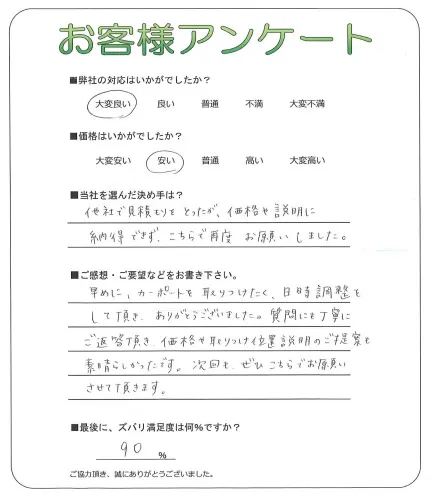 お客様アンケート
■弊社の対応はいかがでしたか？
大変良い 良い 普通 不満 大変不満
■価格はいかがでしたか？
大変安い 安い 普通 高い 大変高い
■当社を選んだ決め手は？
他社で見積もりをとったが、価格や説明に
納得できず、こちらで再度お願いしました。
■ご感想・ご要望などをお書き下さい。
早めに、カーポートを取りつけたく、日時調整を
して頂き、ありがとうございました。質問にも丁寧に
ご返答頂き、価格や取りつけ位置説明のご提案も
素晴らしかったです。次回も、ぜひこちらでお願い
させて頂きます。
■最後に、ズバリ満足度は何％ですか？
90 %
ご協力頂き、誠にありがとうございました。